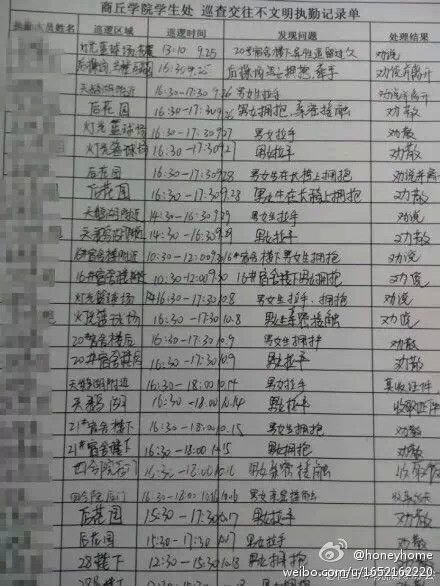 商丘学院学生处 巡查交往不文明执勤记录单
执勤人员姓名 巡逻区域 巡逻时间 发现问题 处理结果
灯光篮球场 13:10 9.25 20#宿舍楼下 劝说
16:30 9.25 拥抱 牵手
天鹅湖附近 16:30-17:30 9.26 男女生拉手
后花园 16:30-17:30 男女拥抱、亲密接触 劝散
灯光篮球场 16:30-17:30 9.27 男女拉手 劝散
灯光篮球场 16:30-17:30 9.27 男女拉手 劝散
后花园 16:30-17:30 9.28 男女生在长椅上拥抱
后花园 16:30-17:30 9.28 男女生在长椅上拥抱 劝散
天鹅湖附近 14:30-16:30 9.29 男女生拉手 劝说
14:30-16:30 9.29 男女拉手 劝散
16#宿舍楼附近 10:30-12:00 9.30 16#宿舍楼下男女生拥抱 劝说
16#宿舍楼附近 10:30-12:00 9.30 16#宿舍楼下男女拥抱 劝散
灯光篮球场 16:30-17:30 10.8 男女生拉手、拥抱 劝说
灯光篮球场 16:30-17:30 10.8 男女亲密接触 劝说
20#宿舍楼后 16:30-17:30 10.9 男女生拥抱 劝散
20#宿舍楼后 16:30-17:30 10.9 男女拥抱 劝散
天鹅湖附近 16:30-18:00 10.14 男女拉手
天鹅湖 16:30-18:00 10.14 男女拉手 收取证件
21#宿舍楼下 16:30-18:00 10.15 男女生拥抱 劝散
21#宿舍楼下 16:30-18:00 男女拥抱 劝散
四合院后门 16:30-18:00 10.16 男女亲密接触
四合院后门 16:30-18:00 10.16 男女亲密接触
后花园 15:30-17:30 10.17 男女拉手 劝散
后花园 15:30-17:30 10.17 男女拉手 劝散
28楼下 12:30-15:30 10.18 男女拥抱 劝散
@honeyhome
weibo.com/u/1652162220